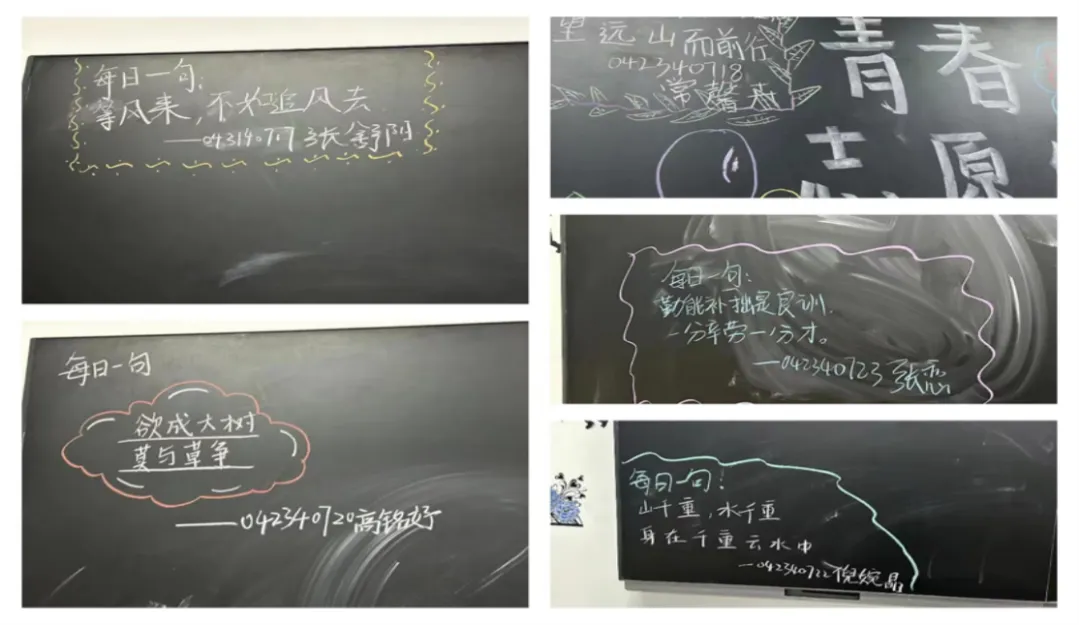 每日一句:
等风来,不如追风去
——043140717 张舒阳
每日一句
欲成大树
莫与草争
——042340720高铭好
望远山而前行
042340718
常馨丹
青春
志愿
每日一句:
勤能补拙是良训.
一分辛劳一分才。
——042340723 张恋
每日一句:
山千重,水千重
身在千重云水中
——042340722 倪婉晶